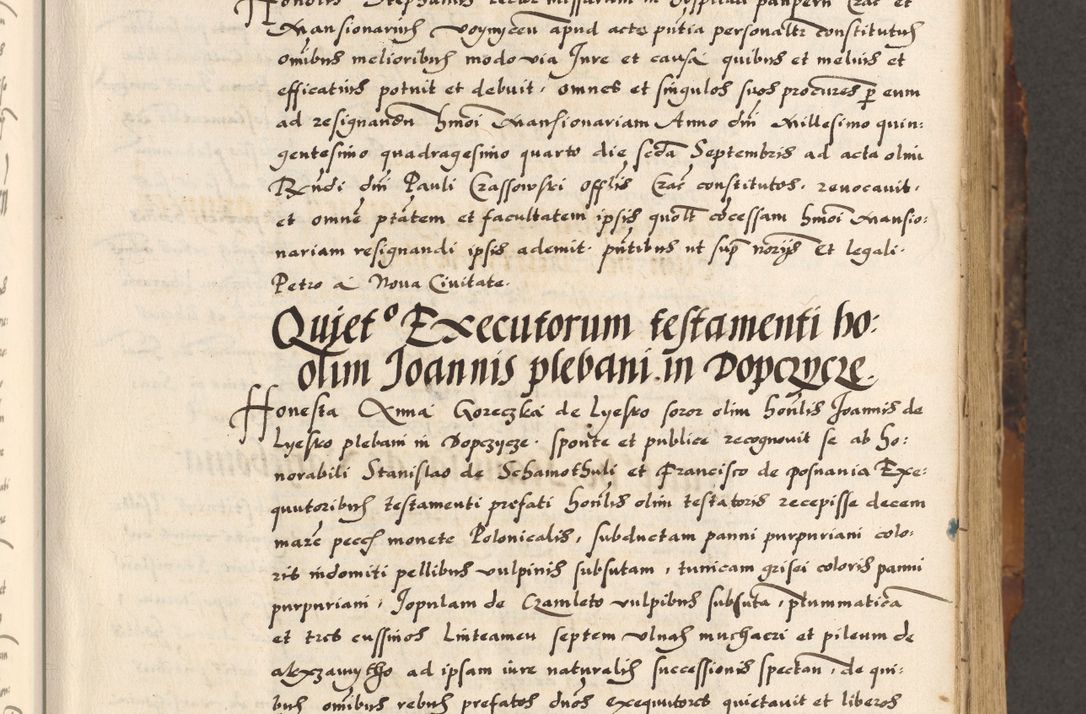 Honor͂lis Stephanus rector missarum in hospitali pauperu Crac͂ et
Mansionarius Voynycen͂ apud acta pn͂tia personalr͂ constitutus
omĩbus melioribus modo via Jure et causa quibus et melius et
efficatius potuit et debuit, omnes et singulos suos procures p̱ eum
ad resignandu hm̃oi Mansionariam Anno dn͂i Millesimo quin⸗
gentesimo quadragesimo quarto die scd͂a Septembris ad acta olim
Rn͂di dn͂i Pauli Crassowski offlis Crac͂ constitutos, revocavit,
et omne͂ pt͂atem et facultatem ipsis quolt͂ co͂cessam hm̃oi Mansio:
nariam resignandi ipsis ademit. pn͂tibus ut sup͂ norijs Et legali.
Petro à Nova Civitate.
Quiet⁰ Executorum testamenti ho:
olim Joannis plebani in Dopczycze.
Honesta Anna Goreczka de Lyesko soror olim hon͂lis Joannis de
Lyesko plebani in Dopczycze, sponte et publice recognovit se ab ho:
norabili Stanislao de Schamothuli et Francisco de posnania Exe:
quutoribus testamenti prefati hon͂lis olim testatoris recepisse decem
marc͂ pecc͂s monete Polonicalis, subductam panni purpuriani colo:
ris indomiti pellibus vulpinis subsutam, tunicam grisei coloris panni
purpuriani, Jopulam de Czamleto vulpibus subsuta, plummatica
et tres cussinos Linteamen septem ulnas muchaeri et pileum de
ad ipsam iure naturalis successionis spectan͂, de qui:
bus omĩbus rebus prefatos duos exequutores quietavit et liberos